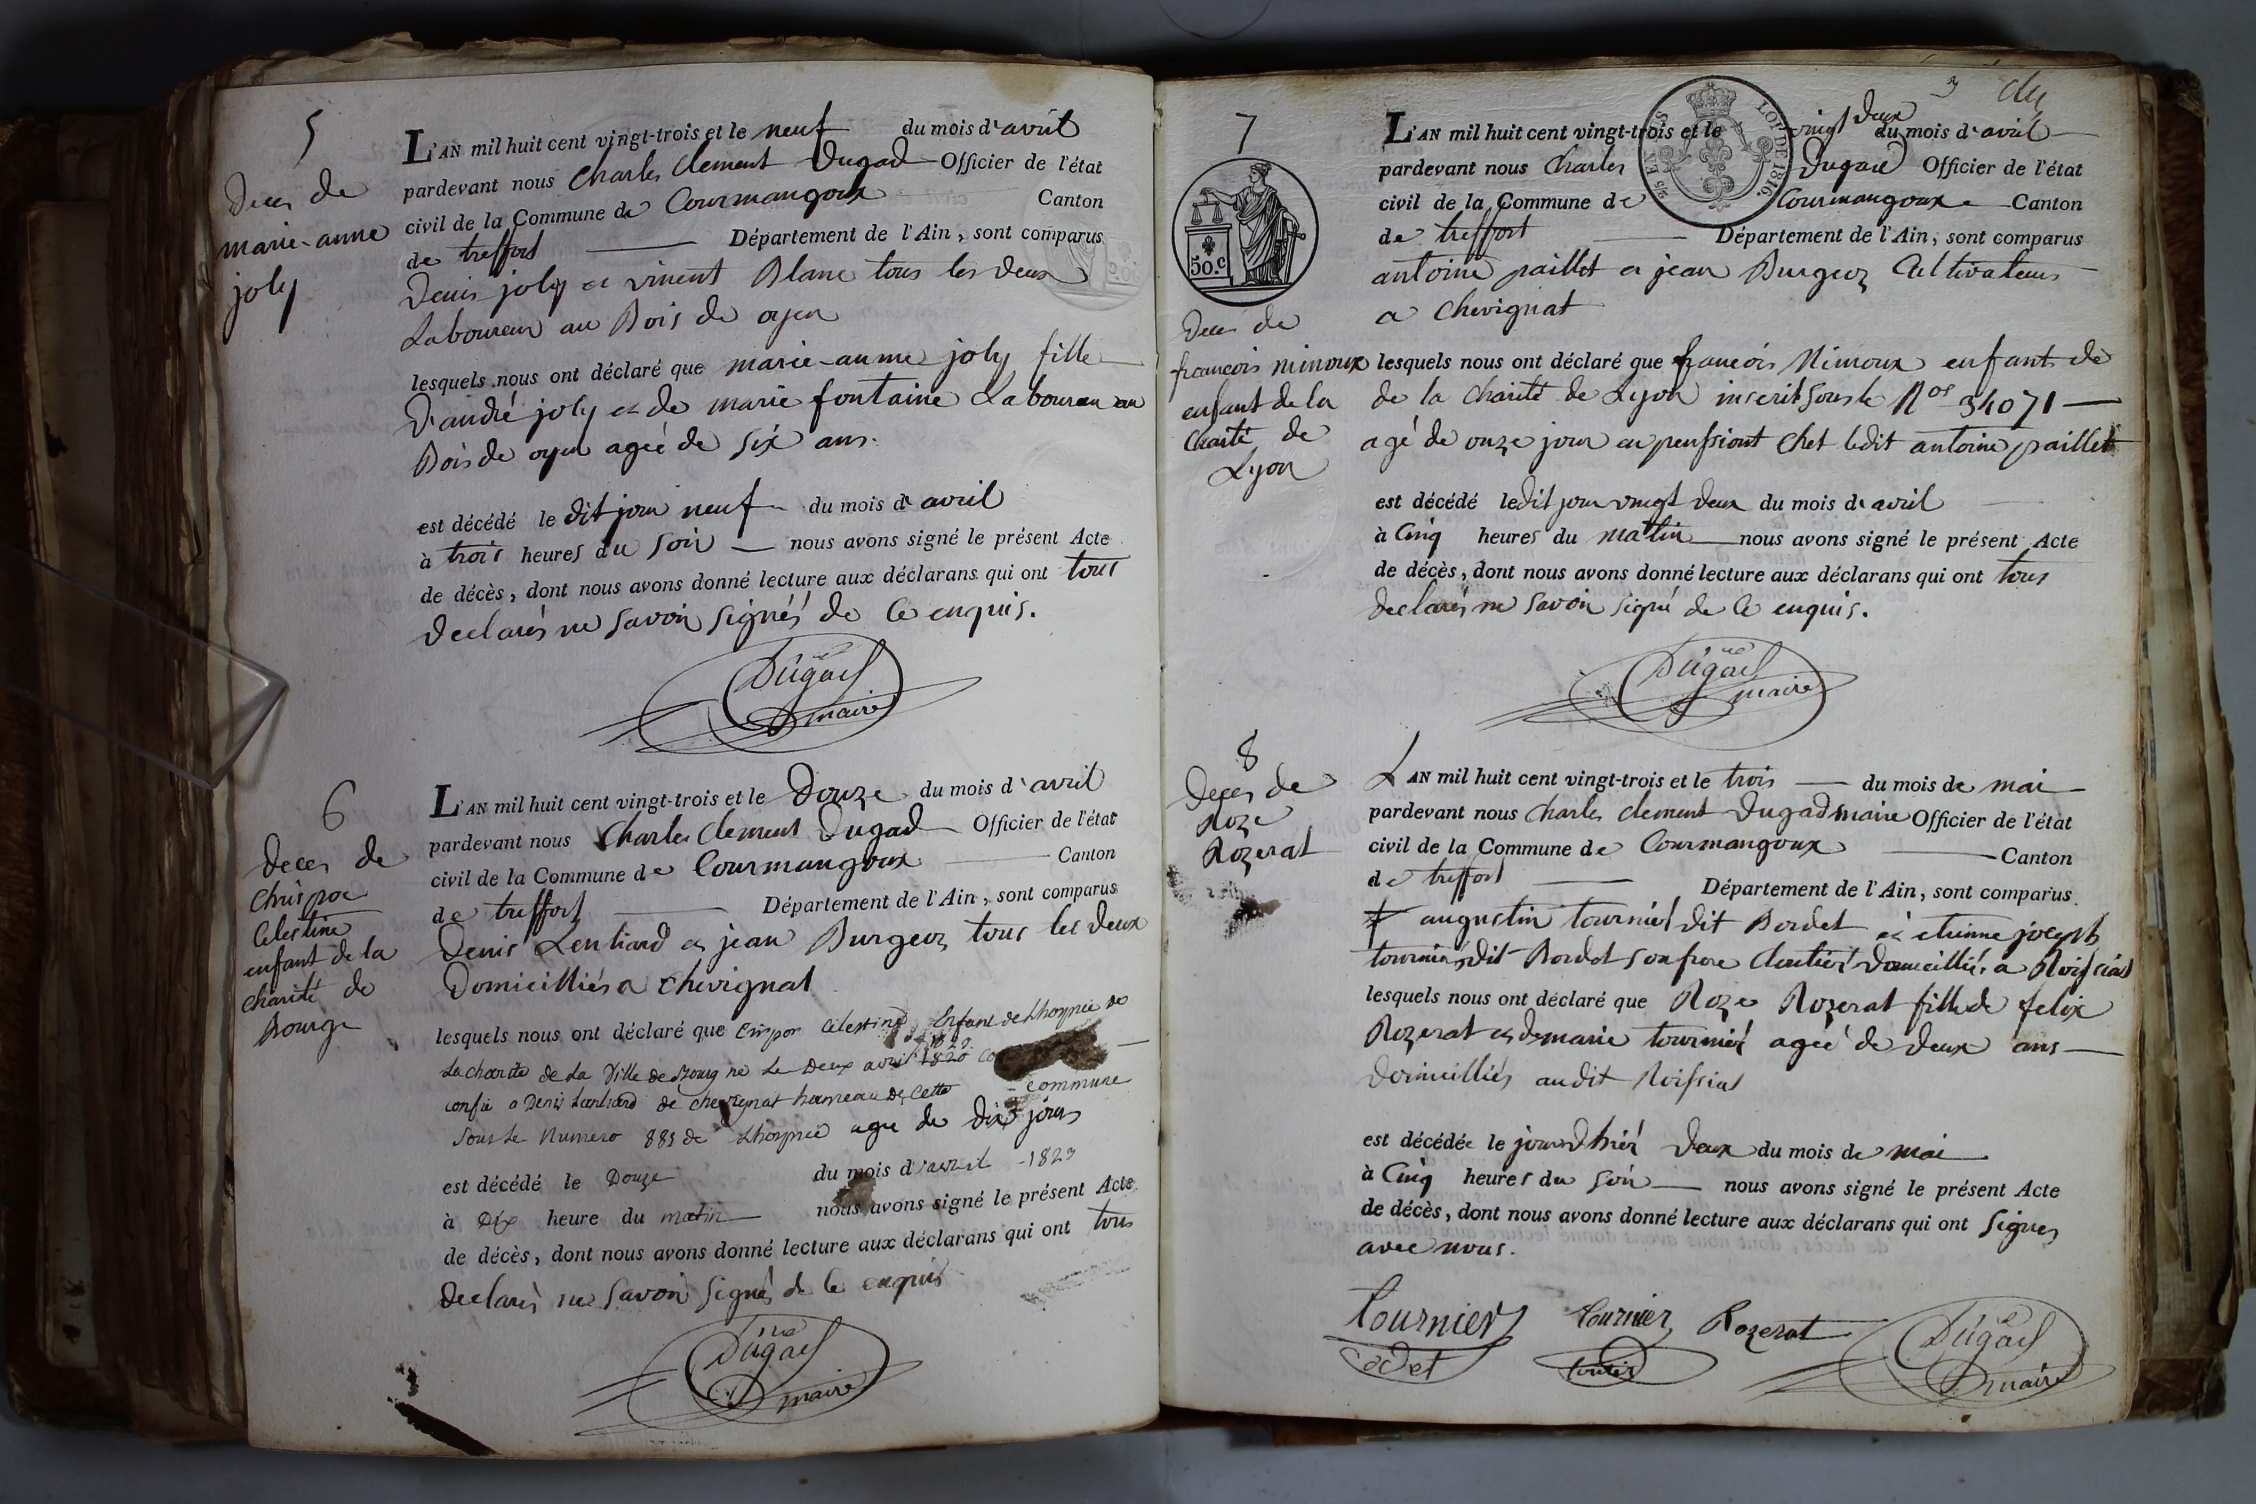 5
Deces de
marie-anne
joly
L'AN mil huit cent vingt-trois et le neuf du mois d'avril
pardevant nous Charles Clement Dugad Officier de l'état
civil de la Commune de Courmangoux Canton
de treffort Département de l'Ain, sont comparus
Denis joly et vincent Blanc tous les deux
Laboureur au Bois de oyen
lesquels nous ont déclaré que marie-anne joly fille
D'andré joly et de marie fontaine Laboureur au
Bois de oyen agée de six ans.
est décédé le dit jour neuf du mois d'avril
à trois heures du soir nous avons signé le présent Acte
de décès, dont nous avons donné lecture aux déclarans qui ont tous
declarés ne savoir signés de ce enquis.
Dugad
maire
6
Deces de
Celestine
enfant de la
charité de
Bourg
L'AN mil huit cent vingt-trois et le Douze du mois d'avril
pardevant nous Charles Clement Dugad Officier de l'état
civil de la Commune de Courmangoux Canton
de treffort Département de l'Ain, sont comparus
Denis Lentiard et jean Burgeoz tous les deux
Domicilliés a chevignat
lesquels nous ont déclaré que Crispor Celestine Enfant de Lhospice de
La charité de La Ville de Bourg né Le Deux avril 1823
confié a Denis Lentiard de chevignat hameau de Cette commune
Sous Le Numero 885 de Lhospice agé de dix jours
est décédé le Douze du mois d'avril 1823
à Dix heure du matin nous avons signé le présent Acte
de décès, dont nous avons donné lecture aux déclarans qui ont tous
declarés ne savoir signés de ce enquis
Dugad
maire
7
50.c
Deces de
francois minoux
enfant de la
Charité de
Lyon
3
LOI DE 1816.
L'AN mil huit cent vingt-trois et le vingt deux du mois d'avril
pardevant nous Charles Dugad Officier de l'état
civil de la Commune de Courmangoux Canton
de treffort Département de l'Ain, sont comparus
antoine paillet et jean Burgeoz Cultivateurs
a Chevignat
lesquels nous ont déclaré que francois Minoux enfant de
de la Charité de Lyon inscrit sous le Nos 34071
agé de onze jour en penssiont chet ledit antoine paillet
est décédé le dit jour vingt deux du mois d'avril
à Cinq heures du matin nous avons signé le présent Acte
de décès, dont nous avons donné lecture aux déclarans qui ont tous
declarés ne savoir signé de ce enquis.
Dugad
maire
8
Deces de
Roze
Rozerat
L'AN mil huit cent vingt-trois et le trois du mois de mai
pardevant nous Charles Clement Dugad maire Officier de l'état
civil de la Commune de Courmangoux Canton
de treffort Département de l'Ain, sont comparus
augustin tournier dit Bordet et etienne joseph
tournier dit Bordet son frere cloutier domicilliés a Roissiat
lesquels nous ont déclaré que Roze Rozerat fille de felix
Rozerat et de marie tournier agée de deux ans
domicilliés audit Roissiat
est décédée le jour d'hier deux du mois de mai
à Cinq heures du soir nous avons signé le présent Acte
de décès, dont nous avons donné lecture aux déclarans qui ont signés
avec nous.
Tournier Tournier Rozerat Dugad
maire